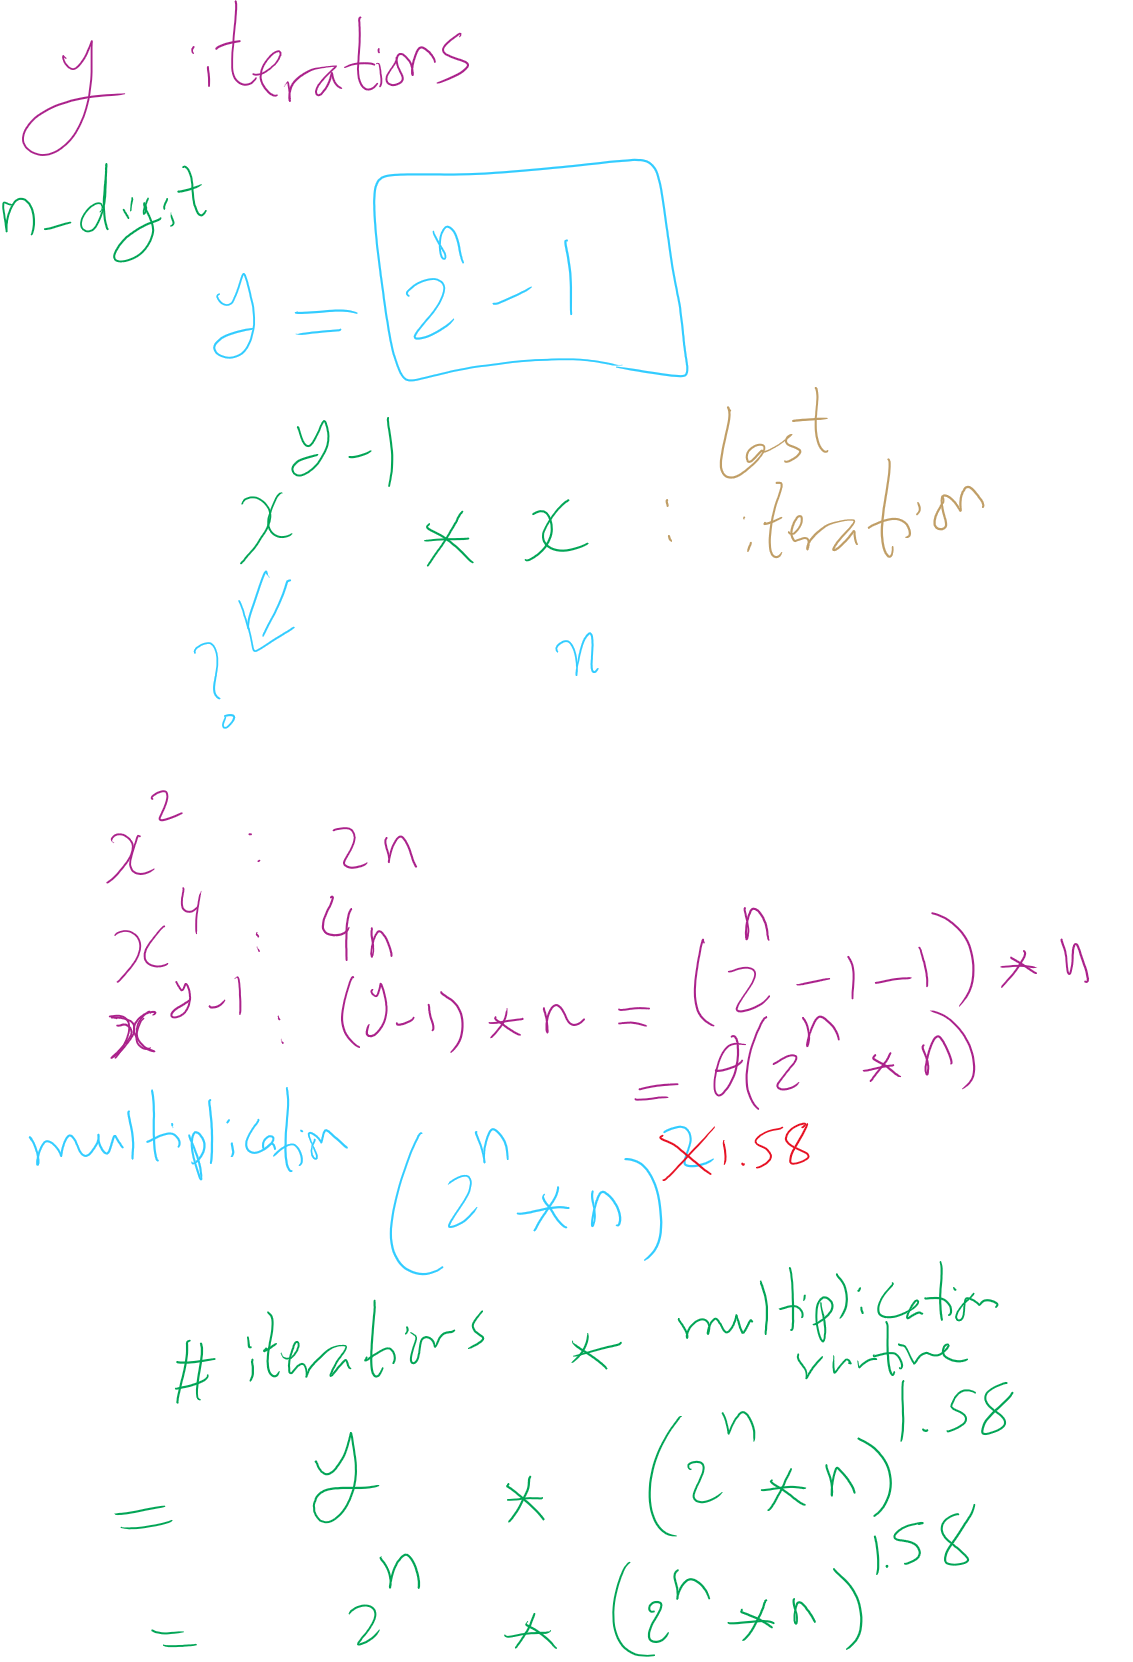 y iterations
n-digit
y = 2^n - 1
x^{y-1} * x : last iteration
? n
x^2 : 2n
x^4 : 4n
x^{y-1} : (y-1) * n = (2^n - 1 - 1) * n
= θ(2^n * n)
multiplication (2^n * n)^{1.58}
# iterations * multiplication runtime
= y * (2^n * n)^{1.58}
= 2^n * (2^n * n)^{1.58}